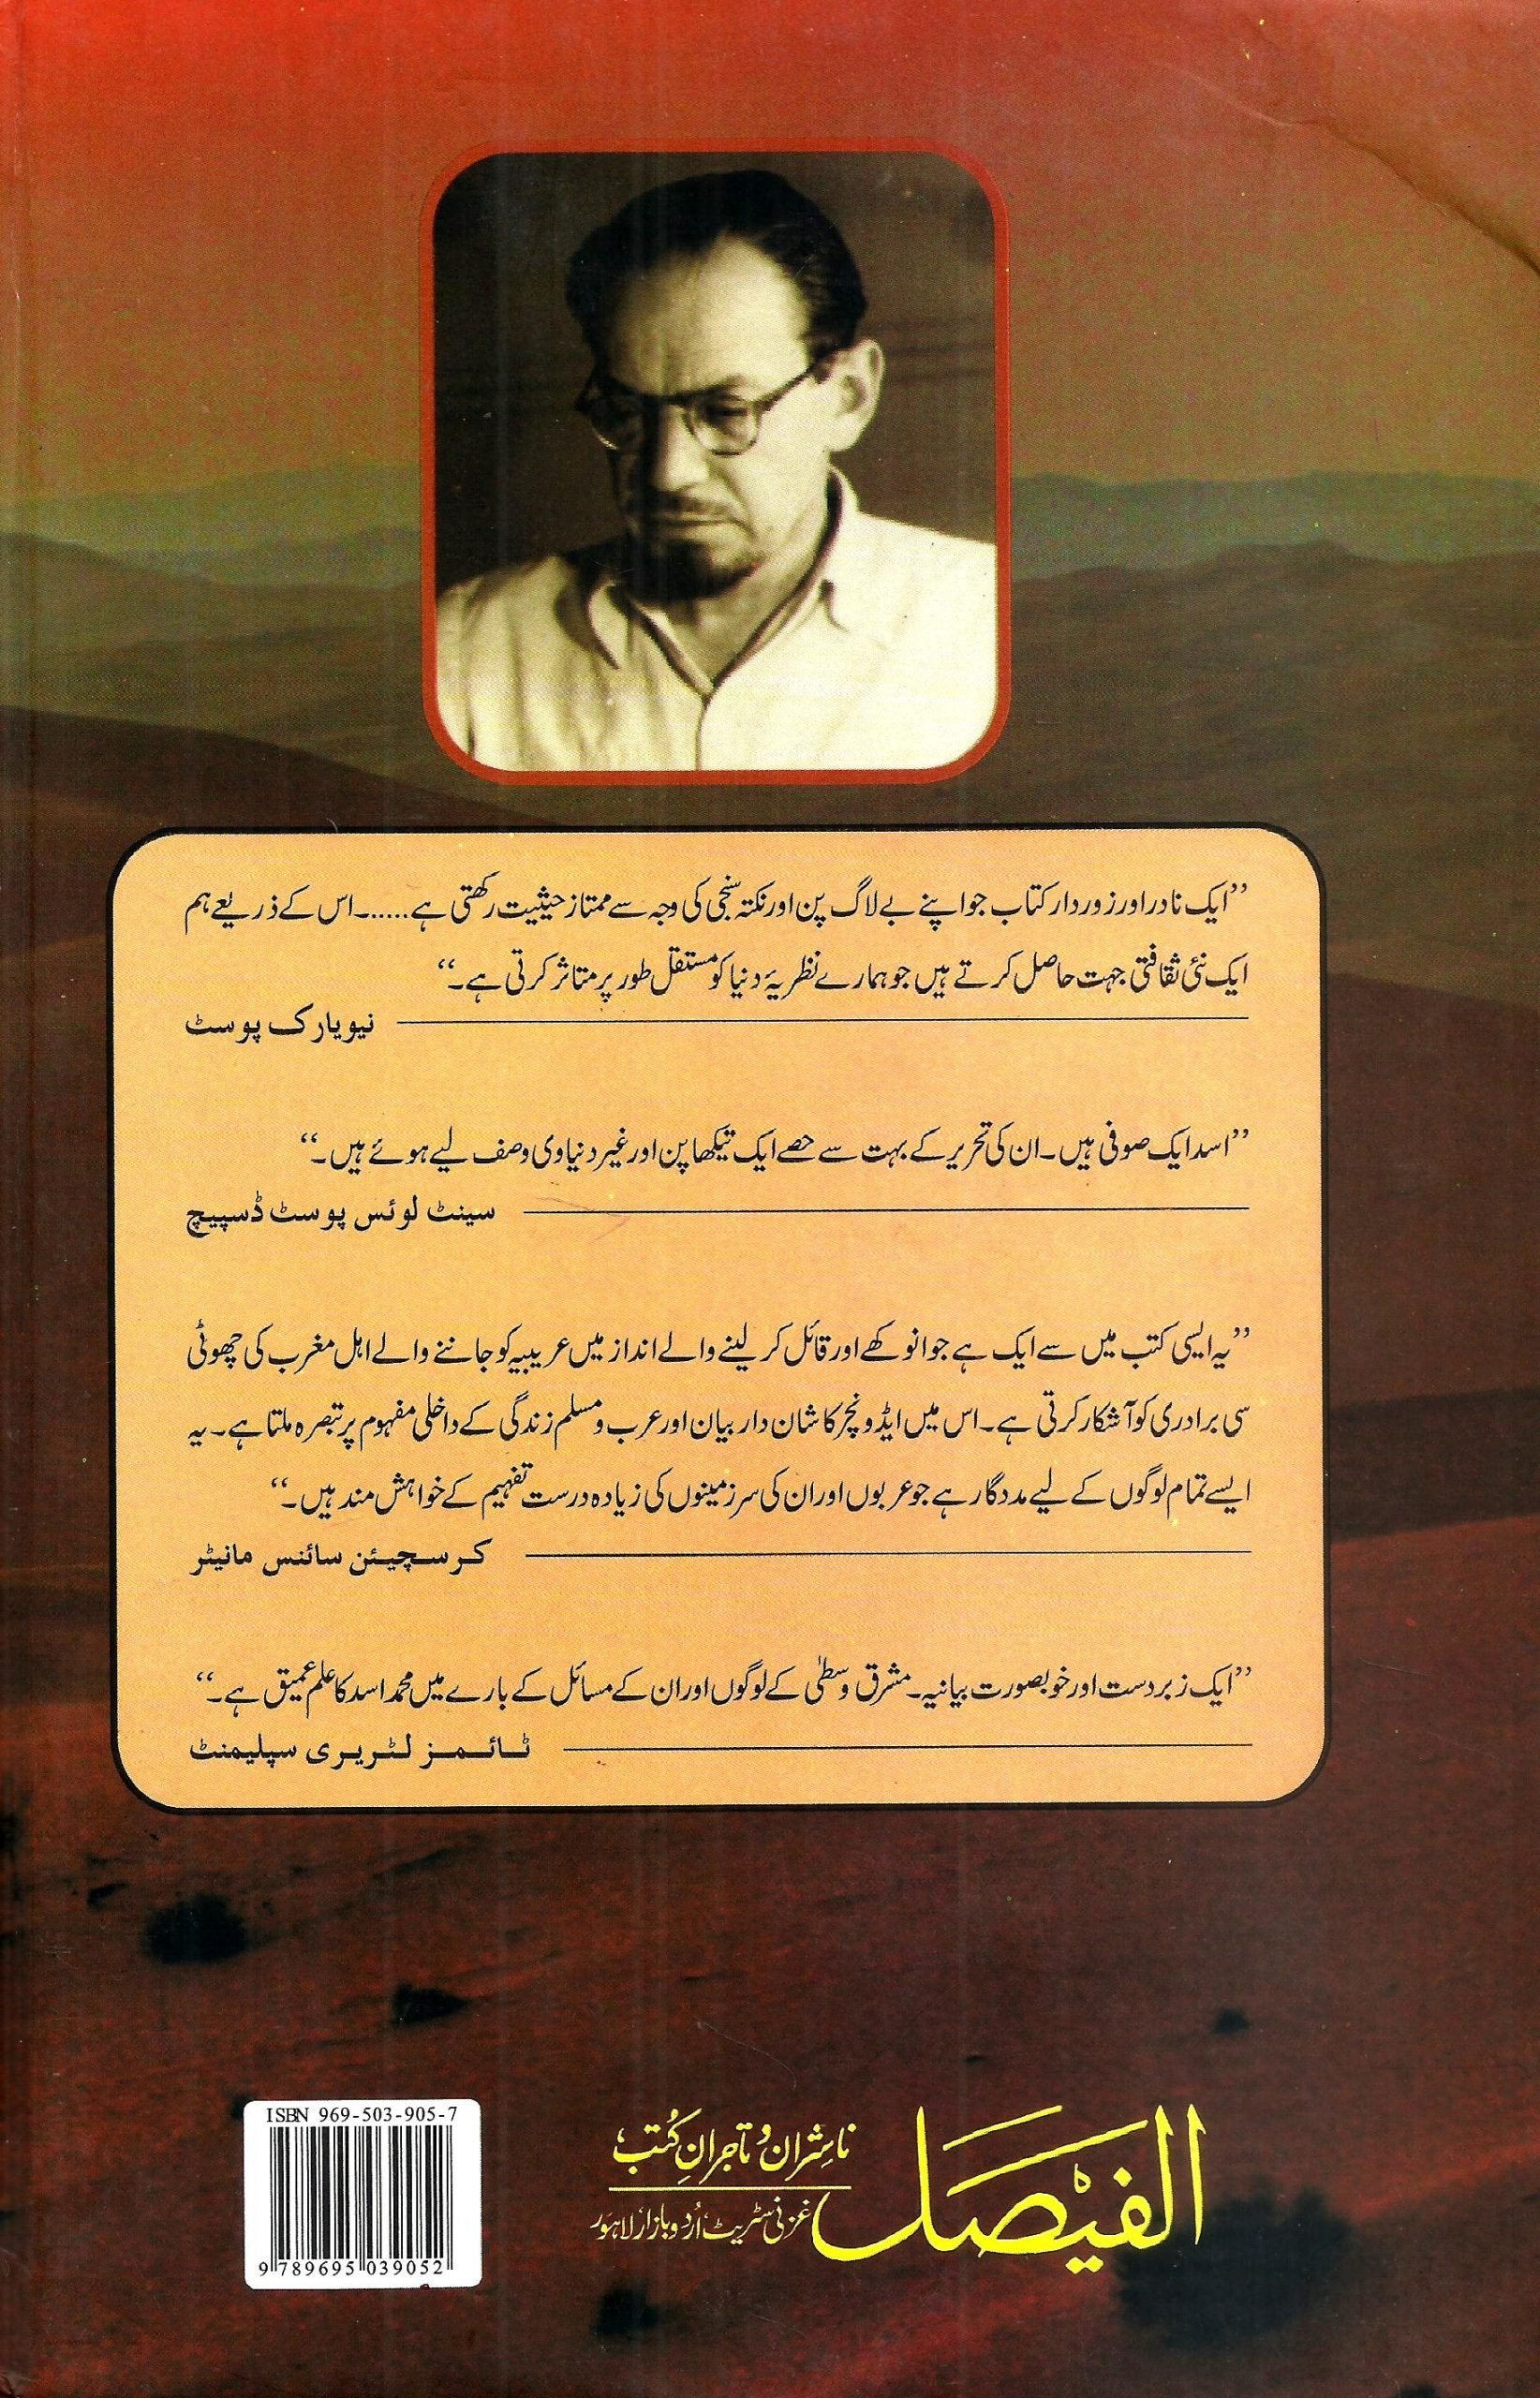 ’’ایک نادر اور زوردار کتاب جو اپنے بے لاگ پن اور نکتہ سنجی کی وجہ سے ممتاز حیثیت رکھتی ہے......۔ اس کے ذریعے ہم
ایک نئی ثقافتی جہت حاصل کرتے ہیں جو ہمارے نظریۂ دنیا کو مستقل طور پر متاثر کرتی ہے۔‘‘
نیویارک پوسٹ
’’اسد ایک صوفی ہیں۔ ان کی تحریر کے بہت سے حصے ایک تیکھا پن اور غیر دنیاوی وصف لیے ہوئے ہیں۔‘‘
سینٹ لوئس پوسٹ ڈسپیچ
’’یہ ایسی کتب میں سے ایک ہے جو انوکھے اور قائل کر لینے والے انداز میں عریبیہ کو جاننے والے اہل مغرب کی چھوٹی
سی برادری کو آشکار کرتی ہے۔ اس میں ایڈونچر کا شان دار بیان اور عرب و مسلم زندگی کے داخلی مفہوم پر تبصرہ ملتا ہے۔ یہ
ایسے تمام لوگوں کے لیے مددگار ہے جو عربوں اور ان کی سرزمینوں کی زیادہ درست تفہیم کے خواہش مند ہیں۔‘‘
کرسچیئن سائنس مانیٹر
’’ایک زبردست اور خوبصورت بیانیہ۔ مشرق وسطیٰ کے لوگوں اور ان کے مسائل کے بارے میں محمد اسد کا علم عمیق ہے۔‘‘
ٹائمز لٹریری سپلیمنٹ
الفیصل
ناشران و تاجرانِ کتب
غزنی سٹریٹ، اُردو بازار، لاہور
ISBN 969-503-905-7
9 789695 039052